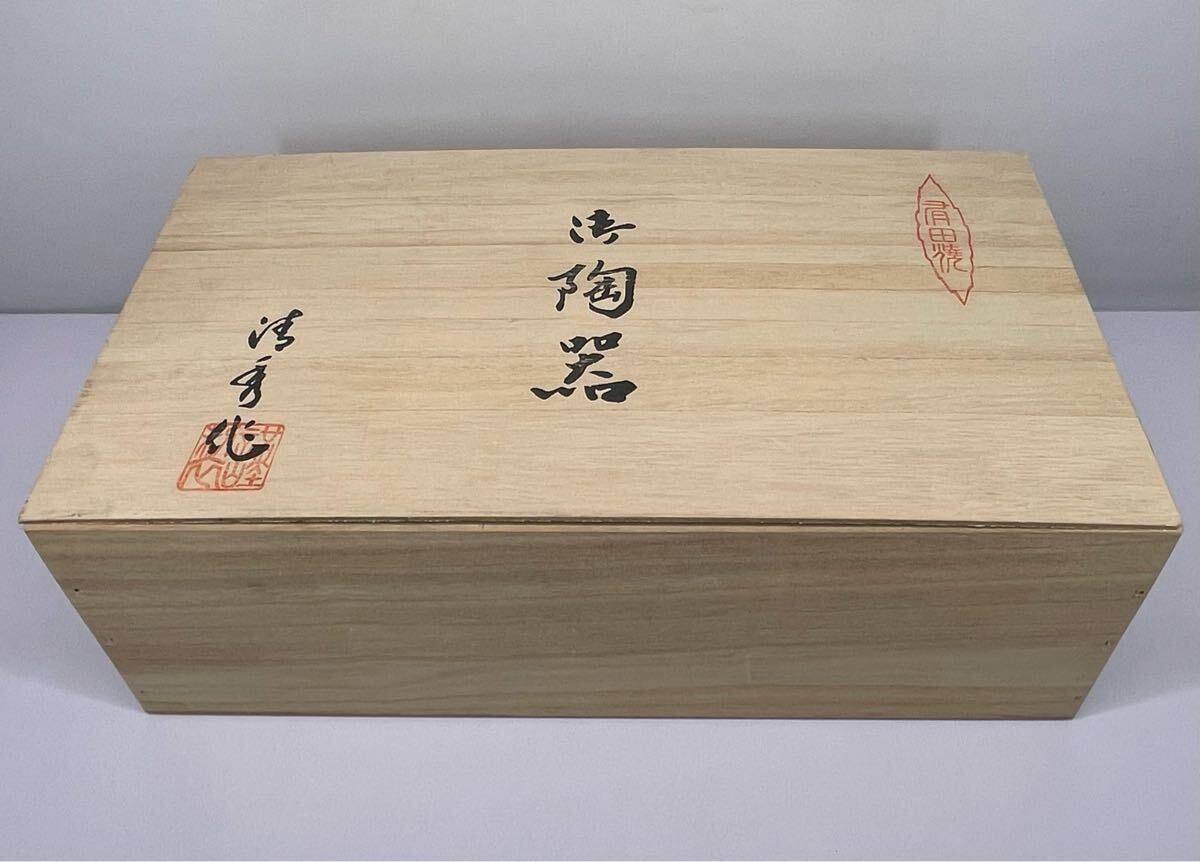 有田焼
御陶器
清秀作